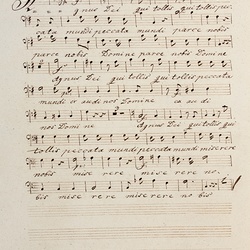 Agnus Dei qui tollis qui tollis pec
cata mundi peccata mundi parce nobis
parce nobis Domine parce nobis Domine
Agnus Dei qui tollis qui tollis peccata
mundi ex audi nos Domine ex au di
nos Domi ne Agnus Dei qui tollis qui
tollis peccata mundi peccata mundi miserere
nobis mise rere mise rere no
bis mise rere mise rere no bis